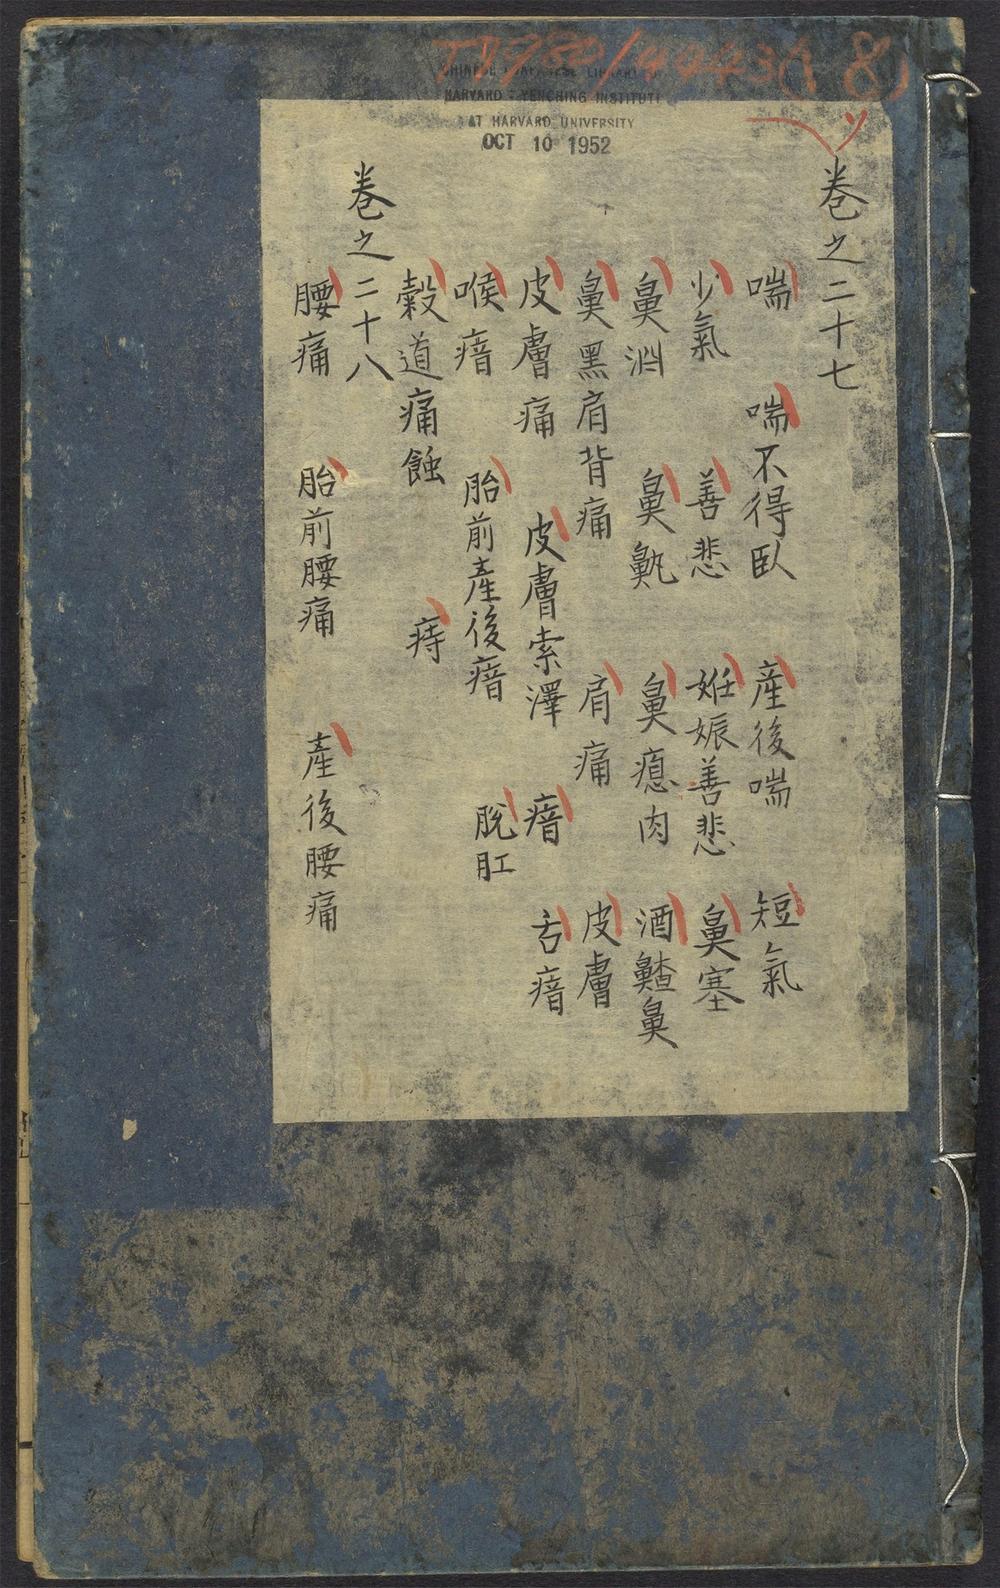 TJ7980/4443(18)
CHINESE-JAPANESE LIBRARY OF
HARVARD-YENCHING INSTITUTE
AT HARVARD UNIVERSITY
OCT 10 1952
卷之二十七
喘　喘不得臥　産後喘　短氣
少氣　善悲　姙娠善悲　鼻塞
鼻淵　鼻鼽　鼻瘜肉　酒齄鼻
鼻黑肩背痛　肩痛　皮膚
皮膚痛　皮膚索澤　瘖　舌瘖
喉瘖　胎前產後瘖　脫肛
穀道痛蝕　痔
卷之二十八
腰痛　胎前腰痛　產後腰痛